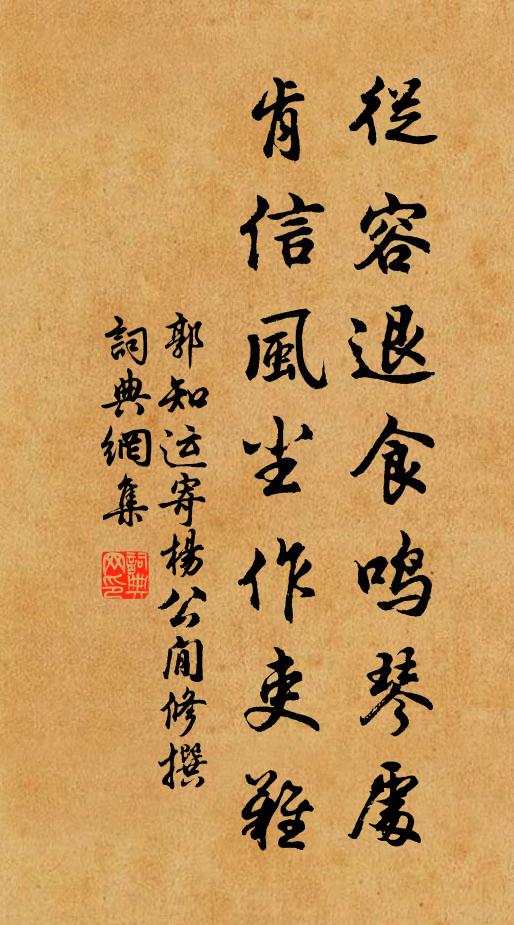 從容退食鳴琴處
肯信風尘作吏難
郭知运寄楊公閒修撰
詞典網集
詞典网印